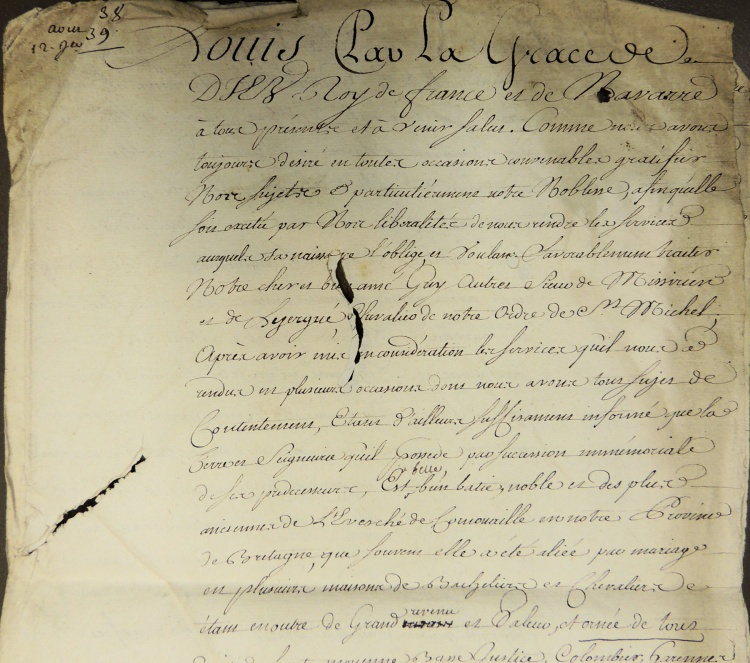 38
39
Louis Par La Grace de
DIEU Roy de france et de Navarre
à tous présents et à venir salut. Comme nous avons
toujours désiré en toutes occasions convenables gratifier
Nos sujets et particulièrement notre Noblesse, afin quelle
soit excitée par Nos liberalités de nous rendre les services
ausquels sa naissance l'oblige, et Voulans favorablement traiter
Notre cher et bien amé Guy Autret Sieur de Missirien
et de Lezergué, Chevalier de notre Ordre de St Michel,
Après avoir mis en considération les services qu'il nous a
rendus en plusieurs occasions dont nous avons tout sujet de
Contentement, Etant d'ailleurs suffisament informé que la
Terre et Seigneurie qu'il possede par succession immémoriale
de ses predecesseurs, Est belle, bien batie, noble et des plus
anciennes de L'Evesché de Cornouaille en notre Province
de Bretagne, que souvent elle a été aliée par mariage
en plusieurs maisons de Bacheliers et Chevaliers
étant en outre de Grand revenu et Valeur, et ornée de tous
moyenne Basse Justice, Colombier, Garenne